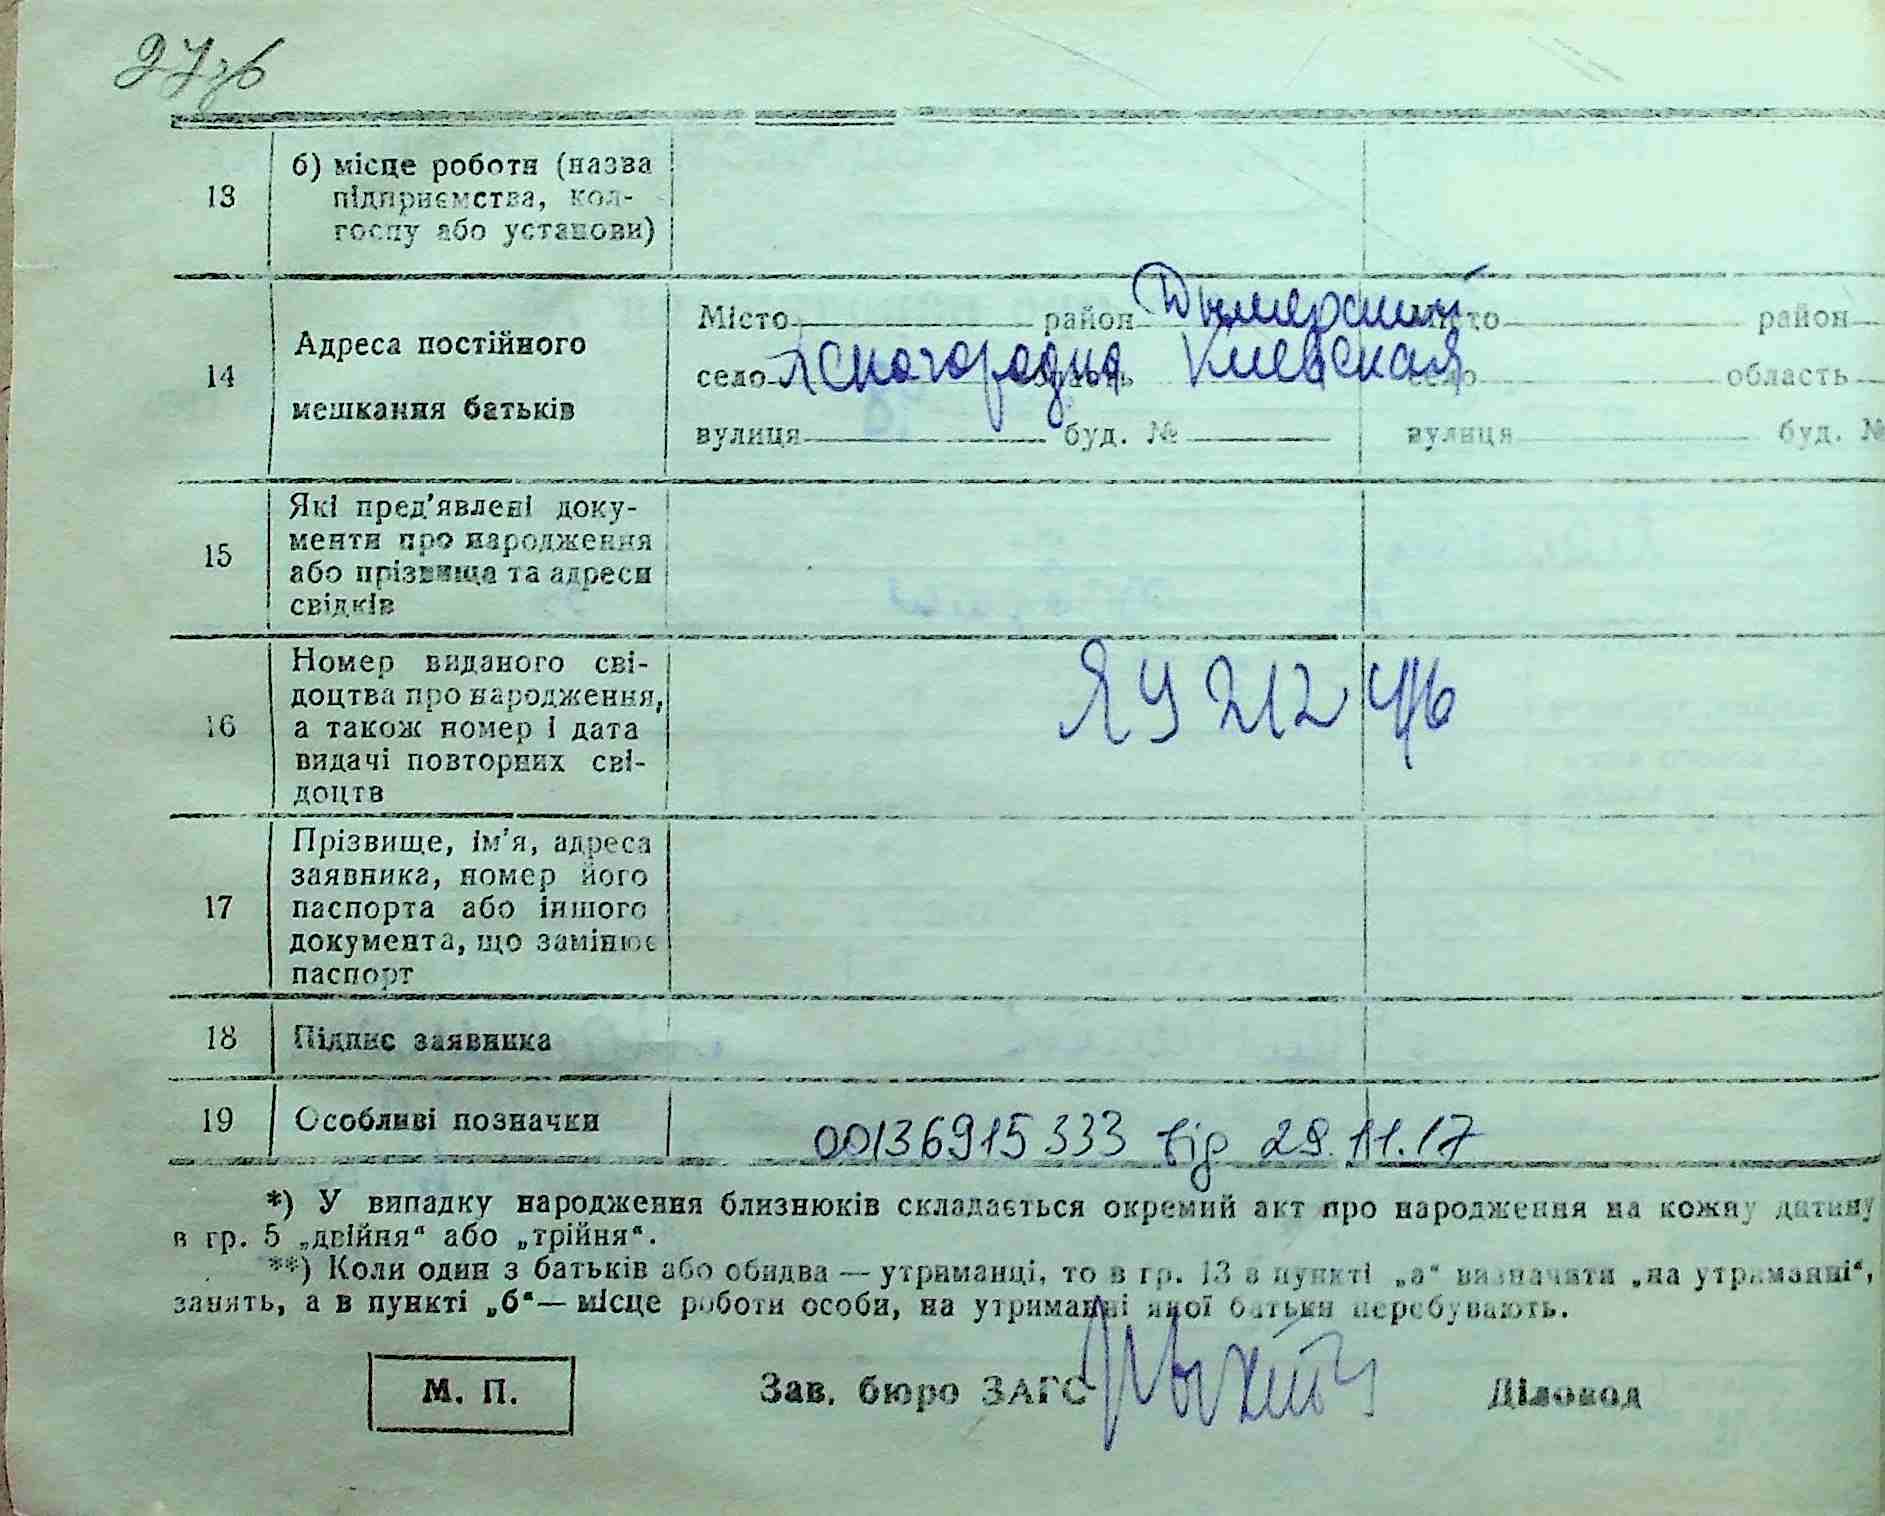 27зб
13
б) місце роботи (назва
підприємства, кол-
госпу або установи)
14
Адреса постійного
мешкання батьків
Місто район Дымерский місто район
село Ясногородка область Киевская село область
вулиця буд. № вулиця буд. №
15
Які пред'явлені доку-
менти про народження
або прізвища та адреси
свідків
16
Номер виданого сві-
доцтва про народження,
а також номер і дата
видачі повторних сві-
доцтв
ЯУ 212
17
Прізвище, ім'я, адреса
заявника, номер його
паспорта або іншого
документа, що замінює
паспорт
18
Підпис заявника
19
Особливі позначки
00136915333 від 29.11.17
*) У випадку народження близнюків складається окремий акт про народження на кожну дитину
в гр. 5 „двійня“ або „трійня“.
**) Коли один з батьків або обидва — утриманці, то в гр. 13 в пункті „а“ визначати „на утриманні“,
занять, а в пункті „б“ — місце роботи особи, на утриманні якої батьки перебувають.
М. П.
Зав. бюро ЗАГС
Діловод